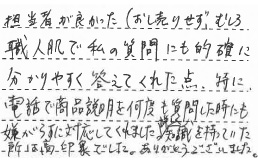 担当者が良かった（おし売りせず、むしろ
職人肌で私の質問にも的確に
分かりやすく答えてくれた点。特に、
電話で商品説明を何度も質問した時にも
嫌がらずに対応してくれました。知識を持っていた
所は高印象でした。ありがとうございました。